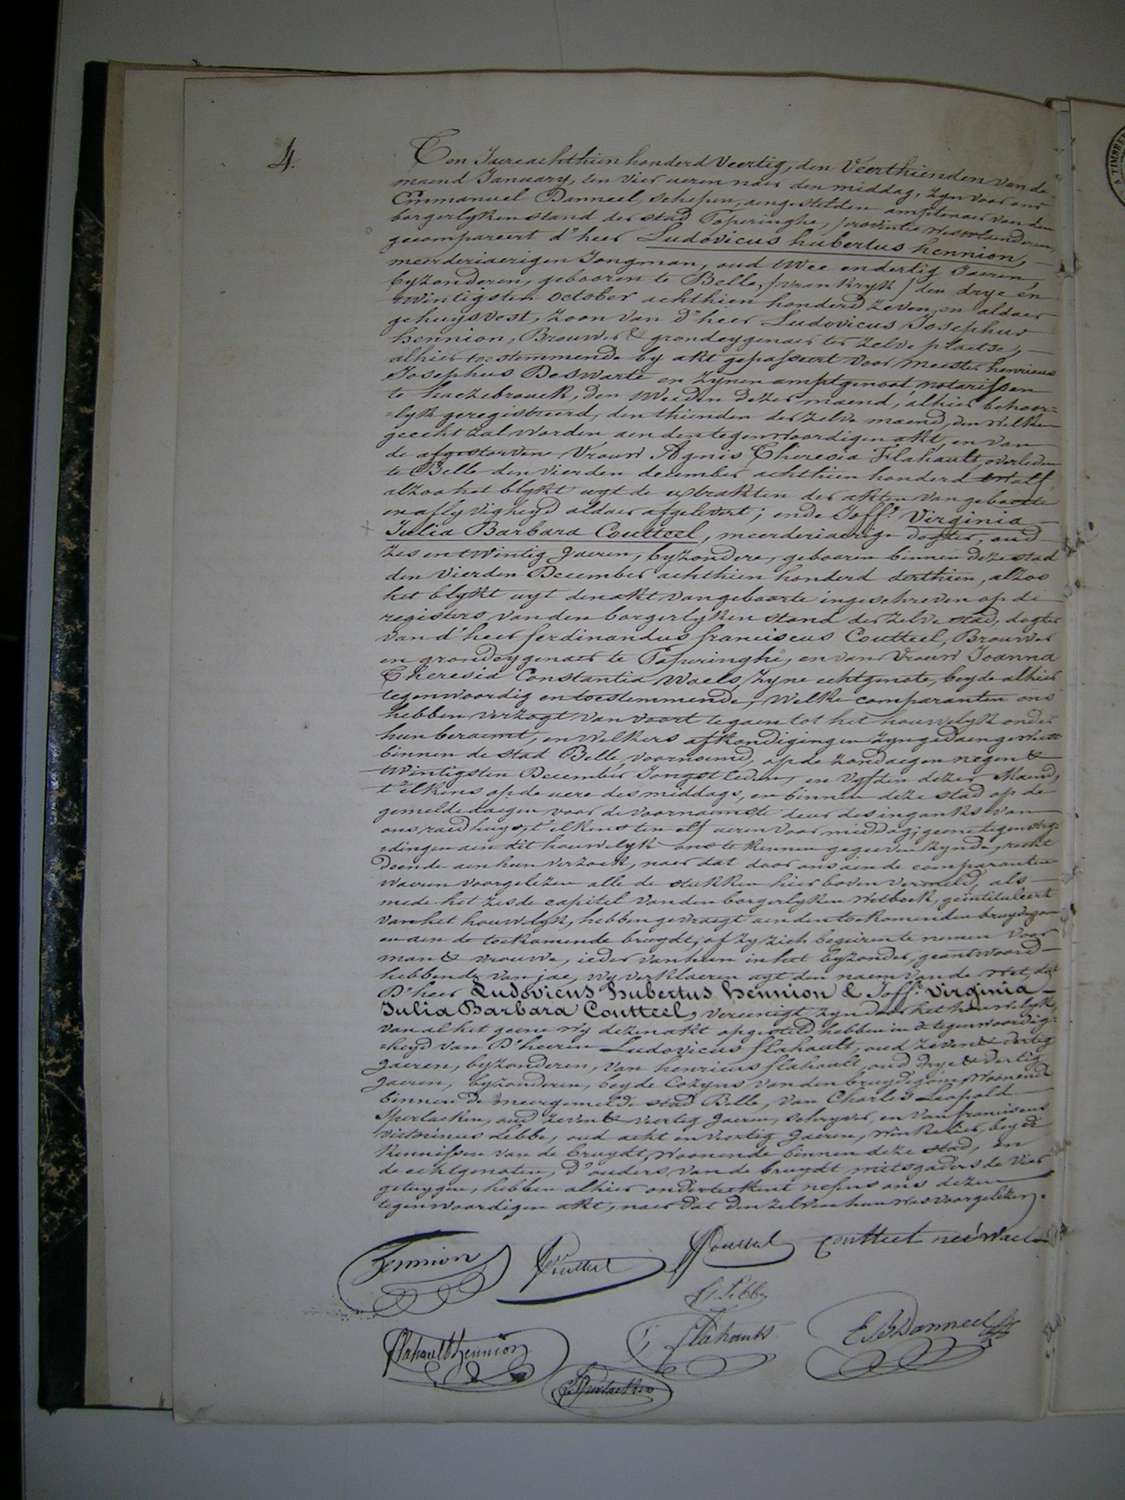 4.
Ten Jaere achthien honderd Veertig, den Veerthienden van de
maend January, ten vier ueren naer den middag, zyn voor ons
Emmanuel Danneel schepen, aengestelden amptenaer van den
borgerlyken stand der stad Poperinghe, provintie Westvlaenderen,
gecompareert d'heer Ludovicus hubertus hennion,
meerderjaerigen Jongman, oud twee en dertig Jaeren,
byzonderen, gebooren te Belle, (vrankryk) den drye en
twintigsten october achthien honderd zeven, en aldaer
gehuysvest, zoon van d'heer Ludovicus Josephus
hennion, Brouwer & grondeygenaer ter zelve plaetse,
alhier toestemmende by akt gepasseert voor meester henricus
Josephus Deswarte en zynen amptgenoot, notarissen
te hazebrouck, den tweeden dezer maend, alhier behoor-
-lyk geregistreerd, den thienden der zelve maend, den welken
gehecht zal worden aen den tegenwoordigen akt, en van
de afgestorvene Vrouw Agnes Theresia Flahault, overleden
te Belle den vierden december achthien honderd twalf,
alzoo het blykt uyt de extrakten der akten van geboorte
en aflyvigheyd aldaer afgelevert; ende Joff.e Virginia
Julia Barbara Coutteel, meerderjaerige dogter, oud
zes en twintig Jaeren, byzondere, gebooren binnen deze stad
den vierden December achthien honderd derthien, alzoo
het blykt uyt den akt van geboorte ingeschreven op de
registers van den borgerlyken stand der zelve stad, dogter
van d'heer ferdinandus franciscus Coutteel, Brouwer
en grondeygenaer te Poperinghe, en van Vrouw Joanna
Theresia Constantia Waels, zyne echtgenote, beyde alhier
tegenwoordig en toestemmende; Welke comparanten ons
hebben verzogt van voort te gaen tot het houwelyk onder
hun beraemt, en welkers afkondigingen zyn gedaen geweest
binnen de stad Belle, voornoemd, op de zondaegen negen &
twintigsten December Jongstleden, en vyfden dezer Maend,
t'elkens op de uere des middags, en binnen deze stad op de
gemelde daegen voor de voornaemste deur des ingangks van
ons raedhuys, t'elkens ten elf ueren voor middag; geene tegenstry-
-dingen aen dit houwelyk ons te kennen gegeeven zynde, recht
doende aen hun verzoek, naer dat door ons aen de comparanten
waeren voorgelezen alle de stukken hier boven vermeld, als
mede het zesde capitel van den borgerlyken wetboek, geintituleert
van het houwelyk, hebben gevraegt aen den toekomenden bruydegom
en aen de toekomende bruydt, of zy zich begeiren te nemen voor
man & vrouwe, ieder van hun in het byzonder, geantwoord
hebbende van jae, wy verklaeren uyt den naem van de wet, dat
D'heer Ludovicus hubertus hennion & Joff.e Virginia
Julia Barbara Coutteel, vereenigt zyn door het houwelyk,
van al het geene wy dezen akt opgesteld hebben in de tegenwoordig-
-heyd van D'heeren Ludovicus flahault, oud zeven & dertig
Jaeren, byzonderen, van henricus flahault, oud drye & dertig
Jaeren, byzonderen, beyde Cozyns van den bruydegom, woonende
binnen de meergemelde stad Belle, van Charles Leopold
oud zeven & veertig Jaeren, schryver, en van franciscus
victorinus debbe, oud acht en veertig Jaeren, winkelier, beyde
kennissen van de bruydt, woonende binnen deze stad, en
de echtgenoten, d'ouders van de bruydt mitsgaders de vier
getuygen, hebben alhier onderteekent nefens ons dezen
tegenwoordigen akt, naer dat den zelven hun was voorgelezen.
Hennion Coutteel Coutteel Coutteel née Wael
Flahault hennion Flahault E. B. Danneel